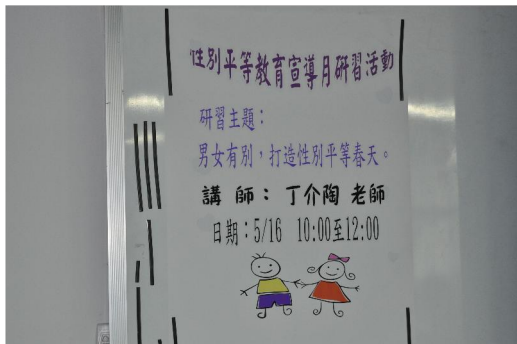 性別平等教育宣導月研習活動
研習主題：
男女有別，打造性別平等春天。
講 師： 丁介陶 老師
日期：5/16 10:00至12:00